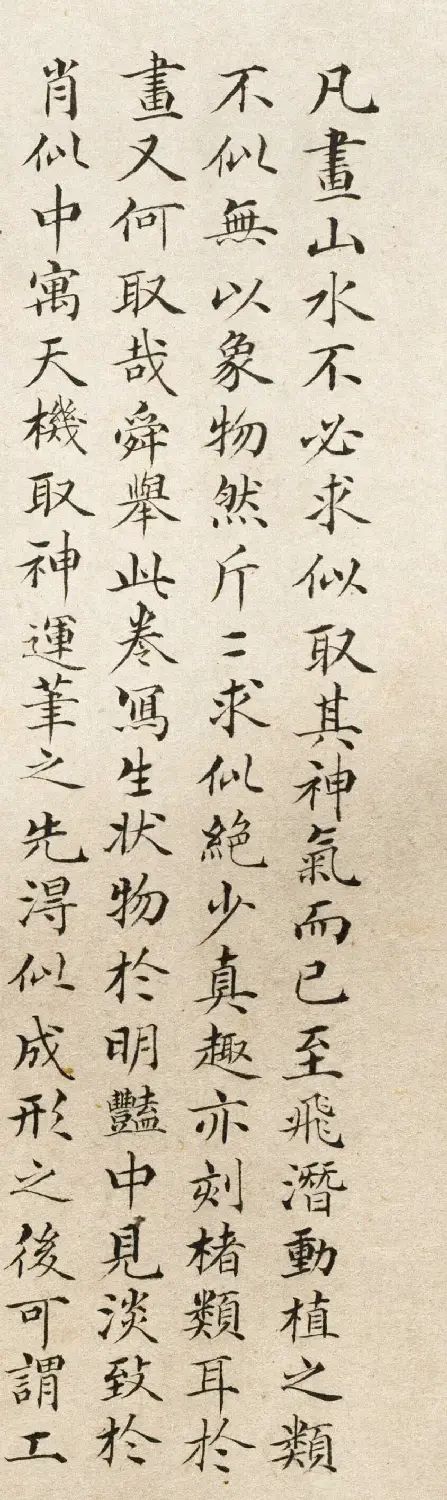 凡畫山水不必求似取其神氣而已至飛潛動植之類
不似無以象物然斤〻求似絶少真趣亦刻楮類耳於
畫又何取哉舜舉此卷寫生狀物於明豔中見淡致於
肖似中寓天機取神運筆之先得似成形之後可謂工